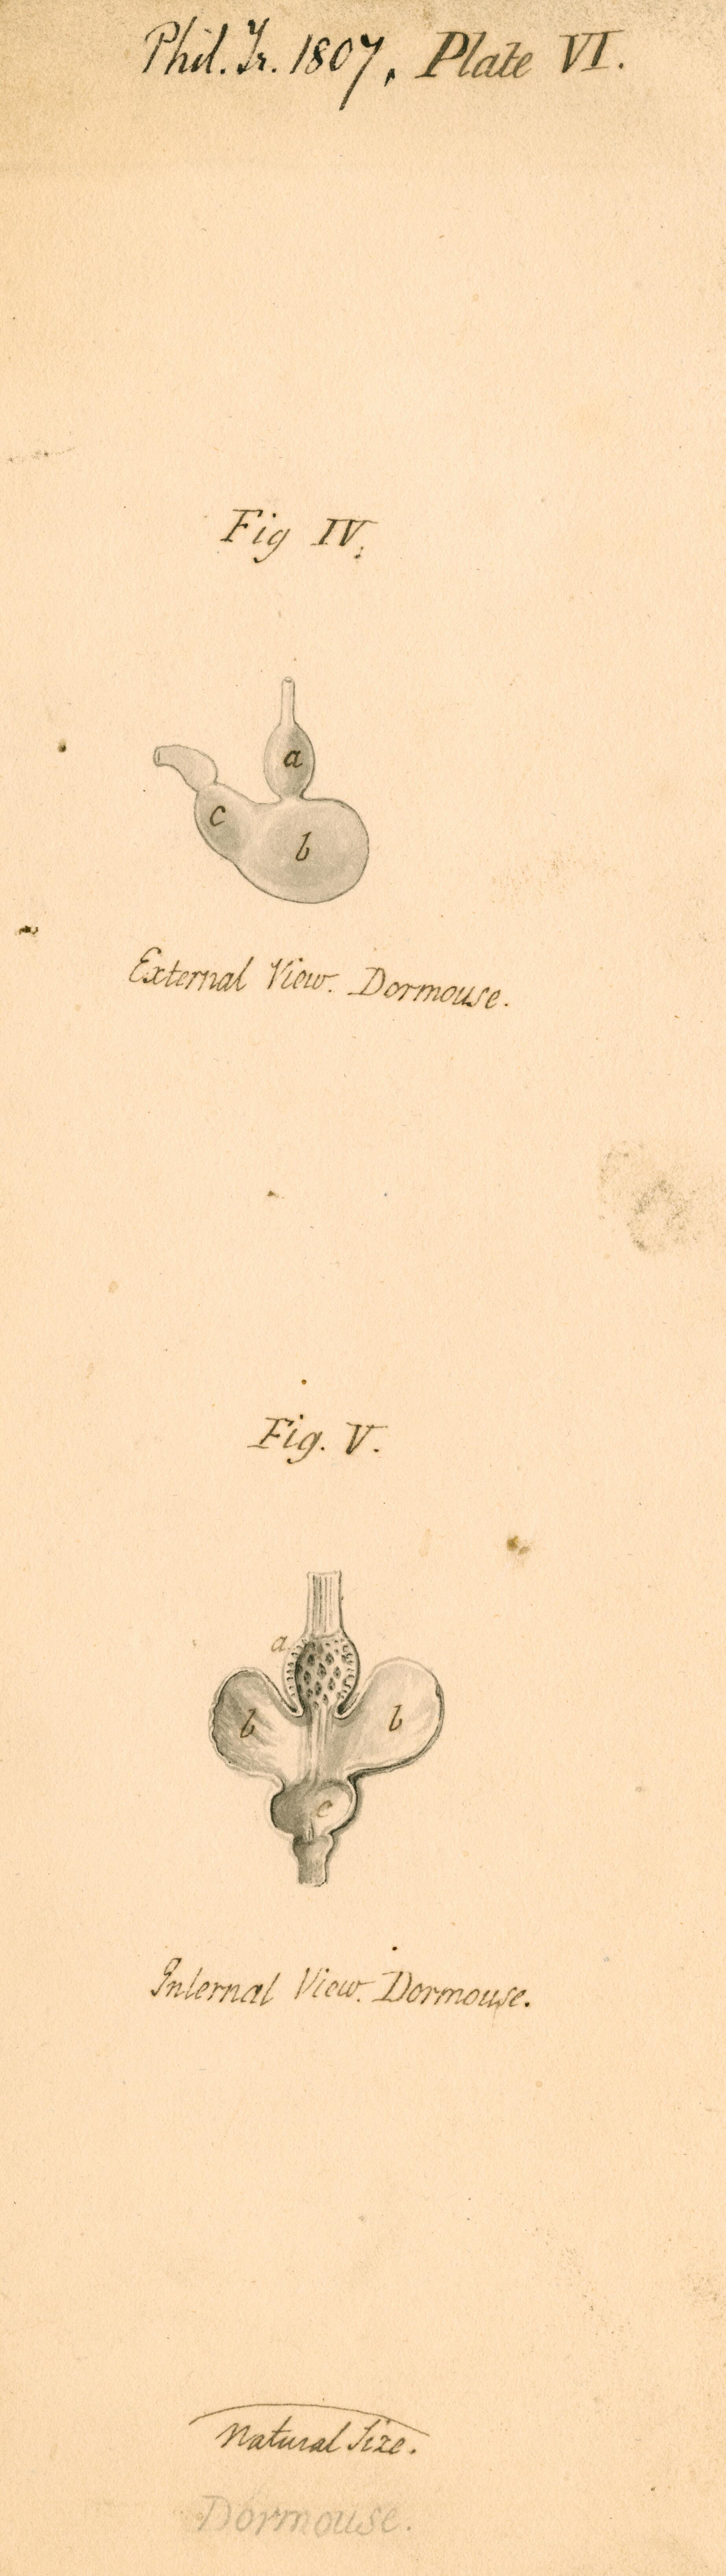 Phil. Tr. 1807, Plate VI.
Fig IV.
a
c
b
External View. Dormouse.
Fig. V.
a
b
b
c
Internal View. Dormouse.
Natural Size.
Dormouse.